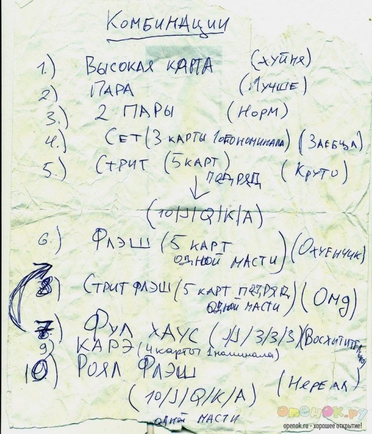 Комбинации
1.) Высокая карта (хуйня)
2) Пара (лучше)
3.) 2 пары (норм)
4.) Сет (3 карты 1ого номинала) (заебца)
5.) Стрит (5 карт) (круто)
подряд
(10/J/Q/K/A)
6.) Флэш (5 карт
одной масти) (охуенчик)
8) Стрит флэш (5 карт подряд
одной масти) (омд)
7) Фул хаус (J/J/3/3/3)
9 Карэ (4 карты 1 наминала)
10) Роял флэш (нереал)
(10/J/Q/K/A)
одной масти
openok.ru
openok.ru - хорошее открытие!